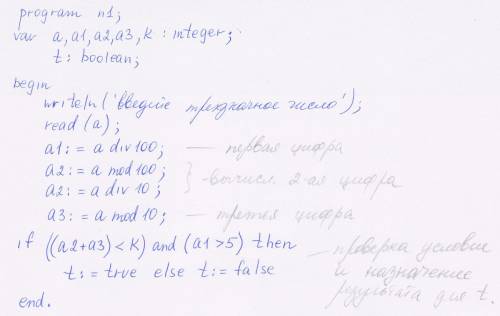 program n1;
var a, a1, a2, a3, k : integer;
t: boolean;
begin
writeln('введите трехзначное число');
read(a);
a1:= a div 100; — первая цифра
a2:= a mod 100;
a2:= a div 10; } - вычисл. 2-ая цифра
a3:= a mod 10; — третья цифра
if ((a2+a3) < K) and (a1 > 5) then — проверка условия
t:= true else t:= false и назначение
end. результата для t.